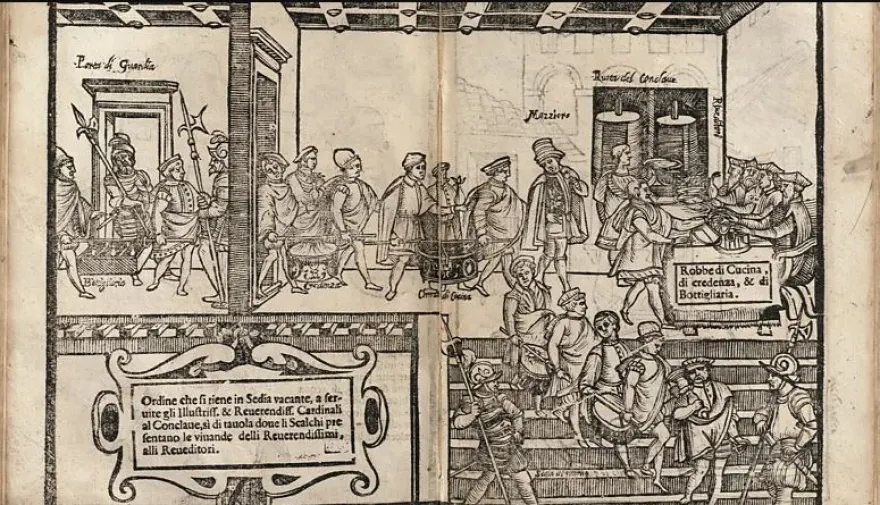 Porta di Guardia
Ruota del Conclaue
Mazziero
Reueditori
Bottigliaria
Credenza
di Cucina
Robbe di Cucina,
di credenza, & di
Bottigliaria.
Ordine che si tiene in Sedia vacante, a ser-
uire gli Illustriss. & Reuerendiss. Cardinali
al Conclaue, sì di tauola doue li Scalchi pre
sentano le viuande delli Reuerendissimi,
alli Reueditori.